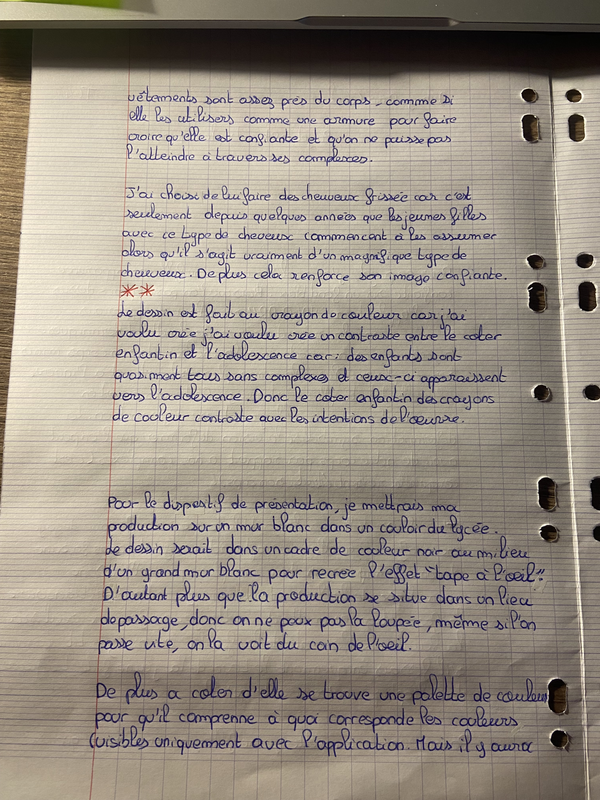 vêtements sont assez près du corps, comme si
elle les utilisers comme une armure pour faire
croire qu'elle est confiante et qu'on ne puisse pas
l'atteindre à travers ses complexes.
J'ai choisi de lui faire des cheuveux frissée car c'est
seulement depuis quelques années que les jeunes filles
avec ce type de cheveux commencent à les assumer
alors qu'il s'agit vraiment d'un magnifique type de
cheuveux. De plus cela renforce son image confiante.
**
Le dessin est fait au crayon de couleur car j'ai
voulu crée j'ai voulu crée un contraste entre le coter
enfantin et l'adolescence car : des enfants sont
quasiment tous sans complexes et ceux-ci apparaissent
vers l'adolescence. Donc le coter enfantin des crayons
de couleur contraste avec les intentions de l'œuvre.
Pour le dispositif de présentation, je mettrais ma
production sur un mur blanc dans un couloir du lycée.
Le dessin serait dans un cadre de couleur noir au milieu
d'un grand mur blanc pour recrée l'effet "tape à l'œil".
D'autant plus que la production se situe dans un lieu
de passage, donc on ne peux pas la loupée, même si l'on
passe vite, on la voit du coin de l'oeil.
De plus a coter d'elle se trouve une palette de couleur
pour qu'il comprenne à quoi corresponde les couleurs
(visibles uniquement avec l'application. Mais il y aura